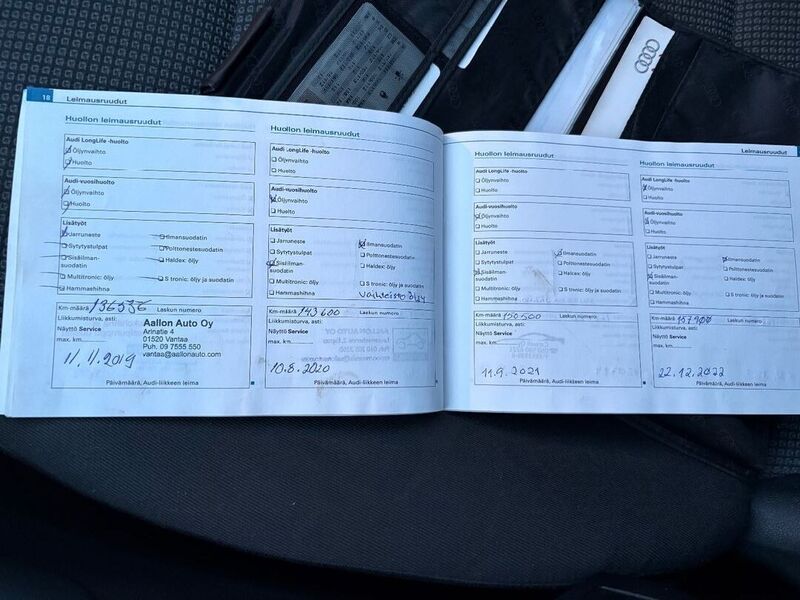 18 Leimausruudut
Huollon leimausruudut
Audi LongLife -huolto
Öljynvaihto
Huolto
Audi-vuosihuolto
Öljynvaihto
Huolto
Lisätyöt
Jarruneste
Ilmansuodatin
Sytytystulpat
Polttonestesuodatin
Sisäilman-
suodatin
Haldex: öljy
Multitronic: öljy
S tronic: öljy ja suodatin
Hammashihna
Km-määrä 136536 Laskun numero
Liikkumisturva, asti:
Näyttö Service
max. km
Aallon Auto Oy
Arinatie 4
01520 Vantaa
Puh. 09 7555 550
vantaa@aallonauto.com
11.11.2019
Päivämäärä, Audi-liikkeen leima
Huollon leimausruudut
Audi LongLife -huolto
Öljynvaihto
Huolto
Audi-vuosihuolto
Öljynvaihto
Huolto
Lisätyöt
Jarruneste
Ilmansuodatin
Sytytystulpat
Polttonestesuodatin
Sisäilman-
suodatin
Haldex: öljy
Multitronic: öljy
S tronic: öljy ja suodatin
Hammashihna
Vaihteisto öljy
Km-määrä 143600 Laskun numero
Liikkumisturva, asti:
Näyttö Service
max. km
10.8.2020
Päivämäärä, Audi-liikkeen leima
Leimausruudut
Huollon leimausruudut
Audi LongLife -huolto
Öljynvaihto
Huolto
Audi-vuosihuolto
Öljynvaihto
Huolto
Lisätyöt
Jarruneste
Ilmansuodatin
Sytytystulpat
Polttonestesuodatin
Sisäilman-
suodatin
Haldex: öljy
Multitronic: öljy
S tronic: öljy ja suodatin
Hammashihna
Km-määrä 150500 Laskun numero
Liikkumisturva, asti:
Näyttö Service
max. km
11.9.2021
Päivämäärä, Audi-liikkeen leima
Huollon leimausruudut
Audi LongLife -huolto
Öljynvaihto
Huolto
Audi-vuosihuolto
Öljynvaihto
Huolto
Lisätyöt
Jarruneste
Ilmansuodatin
Sytytystulpat
Polttonestesuodatin
Sisäilman-
suodatin
Haldex: öljy
Multitronic: öljy
S tronic: öljy ja suodatin
Hammashihna
Km-määrä 157900 Laskun numero
Liikkumisturva, asti:
Näyttö Service
max. km
22.12.2022
Päivämäärä, Audi-liikkeen leima